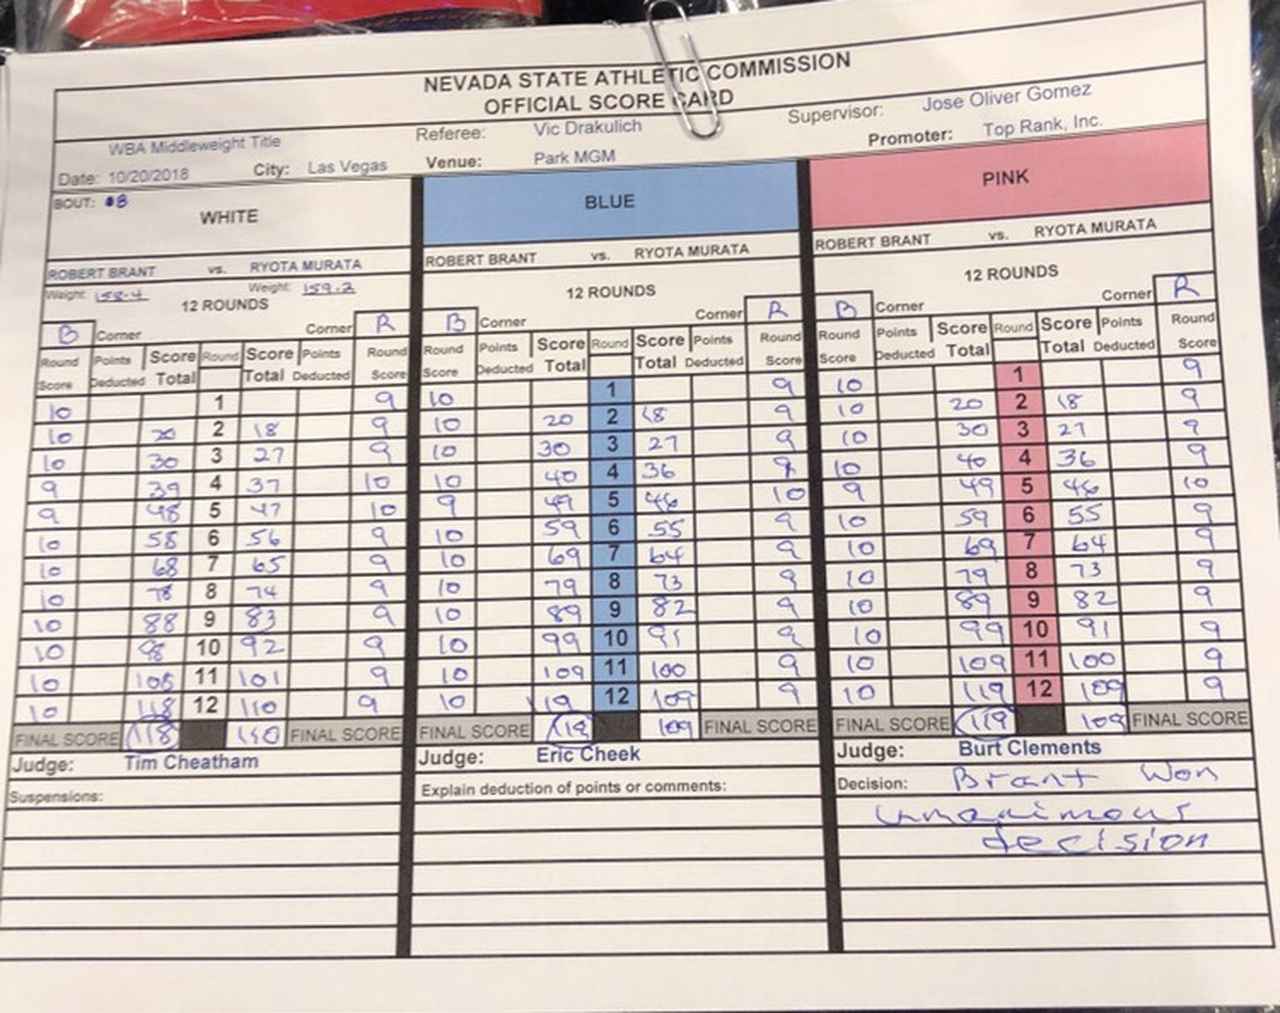 NEVADA STATE ATHLETIC COMMISSION
OFFICIAL SCORE CARD
WBA Middleweight Title Referee: Vic Drakulich Supervisor: Jose Oliver Gomez
Date: 10/20/2018 City: Las Vegas Venue: Park MGM Promoter: Top Rank, Inc.
BOUT: #8
WHITE BLUE PINK
ROBERT BRANT vs. RYOTA MURATA ROBERT BRANT vs. RYOTA MURATA ROBERT BRANT vs. RYOTA MURATA
Weight: 158.4 Weight: 159.2
12 ROUNDS 12 ROUNDS 12 ROUNDS
B Corner Corner R B Corner Corner R B Corner Corner R
Round Score Points Deducted Score Total Round Score Total Points Deducted Round Score Round Score Points Deducted Score Total Round Score Total Points Deducted Round Score Round Score Points Deducted Score Total Round Score Total Points Deducted Round Score
10 1 9 10 1 9 10 1 9
10 20 2 18 9 10 20 2 18 9 10 20 2 18 9
10 30 3 27 9 10 30 3 27 9 10 30 3 27 9
9 39 4 37 10 10 40 4 36 9 10 40 4 36 9
9 48 5 47 10 9 49 5 46 10 9 49 5 46 10
10 58 6 56 9 10 59 6 55 9 10 59 6 55 9
10 68 7 65 9 10 69 7 64 9 10 69 7 64 9
10 78 8 74 9 10 79 8 73 9 10 79 8 73 9
10 88 9 83 9 10 89 9 82 9 10 89 9 82 9
10 98 10 92 9 10 99 10 91 9 10 99 10 91 9
10 108 11 101 9 10 109 11 100 9 10 109 11 100 9
10 118 12 110 9 10 119 12 109 9 10 119 12 109 9
FINAL SCORE 118 110 FINAL SCORE FINAL SCORE 119 109 FINAL SCORE FINAL SCORE 119 109 FINAL SCORE
Judge: Tim Cheatham Judge: Eric Cheek Judge: Burt Clements
Suspensions: Explain deduction of points or comments: Decision: Brant Won
unanimous
decision